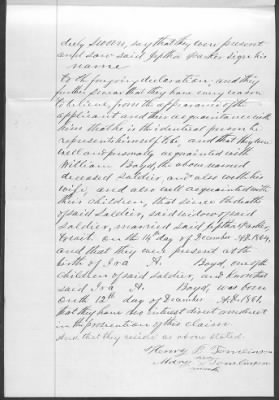 duly sworn, say that they were present
and saw said Jeptha Parker sign his
name
to the foregoing declaration and they
further swear that they have every reason
to believe, from the appearance of the
applicant and their acquaintance with
him that he is the identical person he
represents himself to be, and that they were
well and personally acquainted with
William Boyd, the above named
deceased soldier, and also with his
wife, and also well acquainted with
their children, that since the death
of said soldier, said widow of said
soldier, married said Jeptha Parker,
to wit: on the 14th day of December A.D. 1864,
and that they were present at the
birth of Ira A. Boyd, one of the
children of said soldier, and know that
said Ira A. Boyd, was born
on the 12th day of December A.D. 1861,
that they have no interest direct or indirect
in the prosecution of this claim
and that they reside as above stated.
Henry L. Tomlinson
Mary her Tomlinson
mark